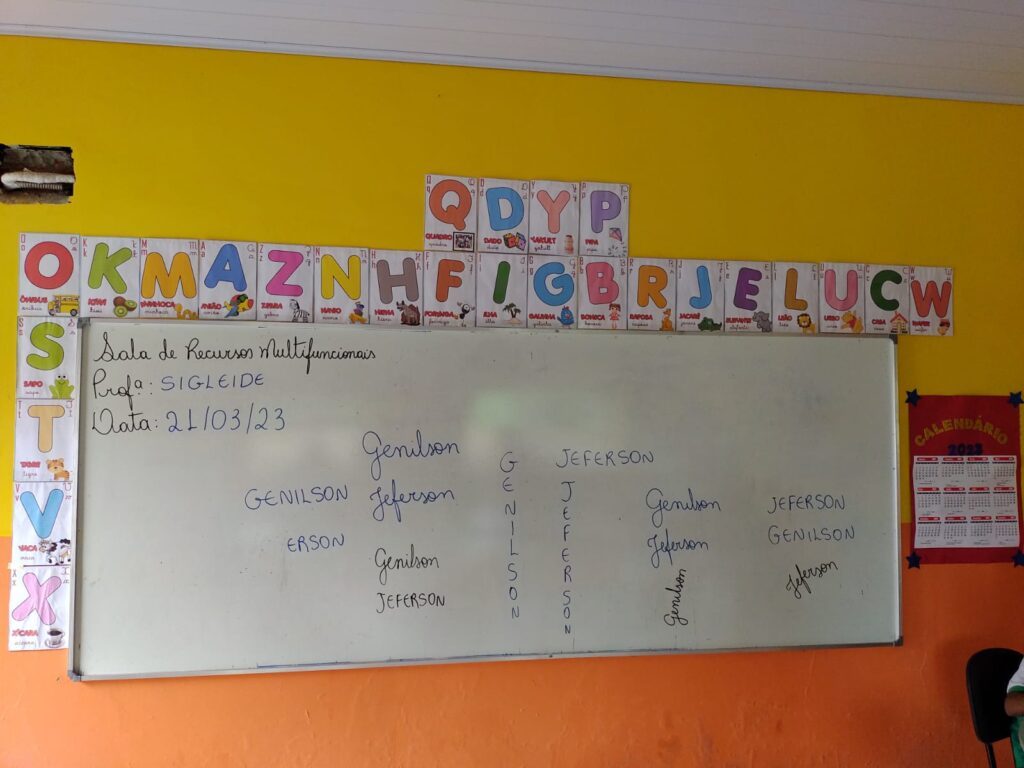 Q D Y P
QUADRO DADO YAKULT PIPA
O K M A Z N H F I G B R J E L U C W
ÔNIBUS KIWI MINHOCA AVIÃO ZEBRA NAVIO HIENA FORMIGA ILHA GALINHA BONECA RAPOSA JACARÉ ELEFANTE LEÃO URSO CASA WAFER
S
SAPO
sapo
T
TIGRE
tigre
V
VACA
vaca
X
XÍCARA
xícara
Sala de Recursos Multifuncionais
Profª: SIGLEIDE
Data: 21/03/23
Genilson
GENILSON Jeferson
ERSON
Genilson
JEFERSON
GENILSON
JEFERSON
JEFERSON
Genilson JEFERSON
Jeferson GENILSON
Genilson Jeferson
CALENDÁRIO
2023